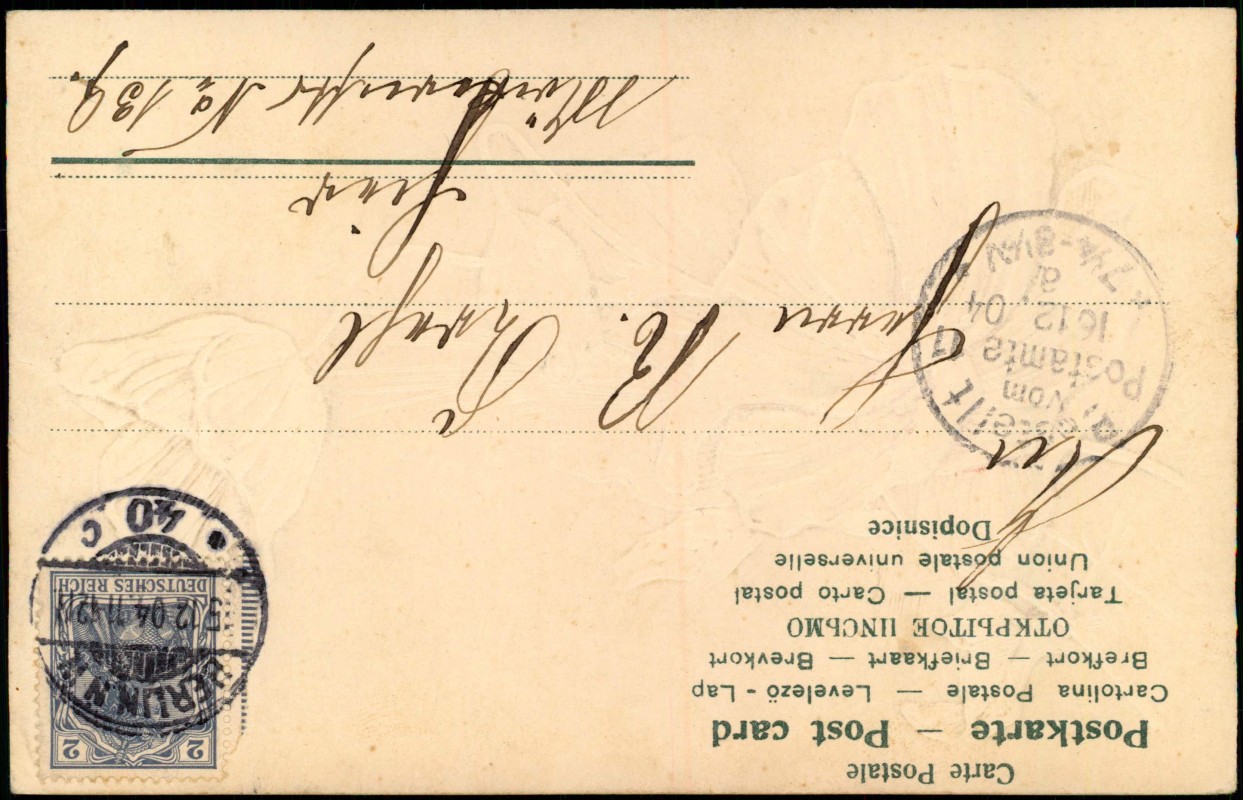 Carte Postale
Postkarte — Post card
Cartolina Postale — Levelező-Lap
Brefkort — Briefkaart — Brevkort
ОТКРЫТОЕ ПИСЬМО
Tarjeta postal — Carto postal
Union postale universelle
Dopisnice
2 2
DEUTSCHES REICH
BERLIN, N.
12 04
c
Bestellt
vom
Postamte 11
16 12 04
a/
7¼-8½V
An
Herrn R.
hier
No 139.